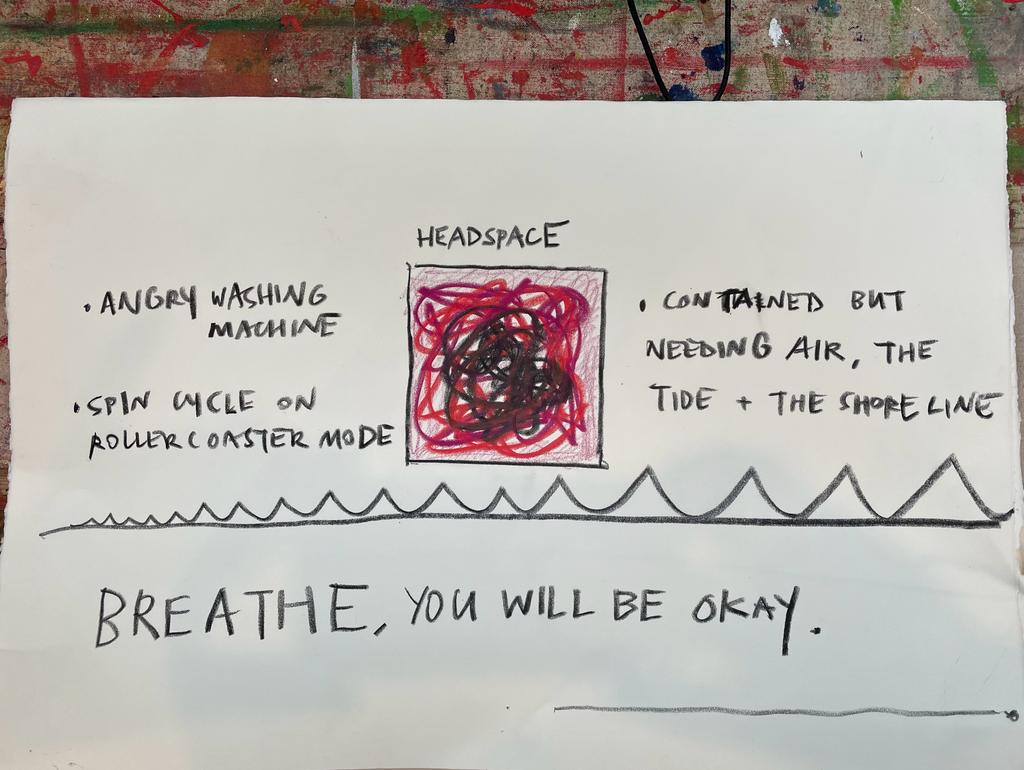 HEADSPACE
• ANGRY WASHING
MACHINE
• SPIN CYCLE ON
ROLLERCOASTER MODE
• CONTAINED BUT
NEEDING AIR, THE
TIDE + THE SHORELINE
BREATHE, YOU WILL BE OKAY.